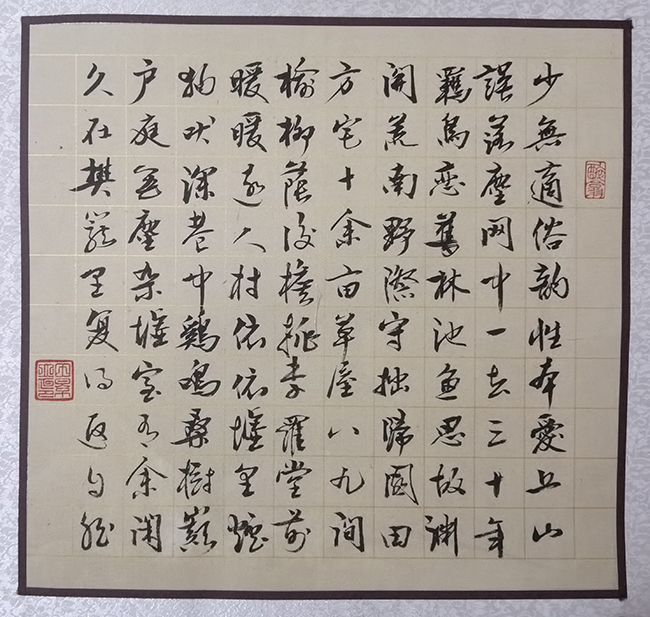 少無適俗韵性本愛丘山
誤落塵网中一去三十年
羈鳥恋舊林池魚思故渊
開荒南野際守拙歸園田
方宅十余亩草屋八九间
榆柳蔭後檐桃李羅堂前
暖暖遠人村依依墟里煙
狗吠深巷中鷄鳴桑樹巔
户庭無塵杂墟室有余闲
久在樊籠里复得返自然